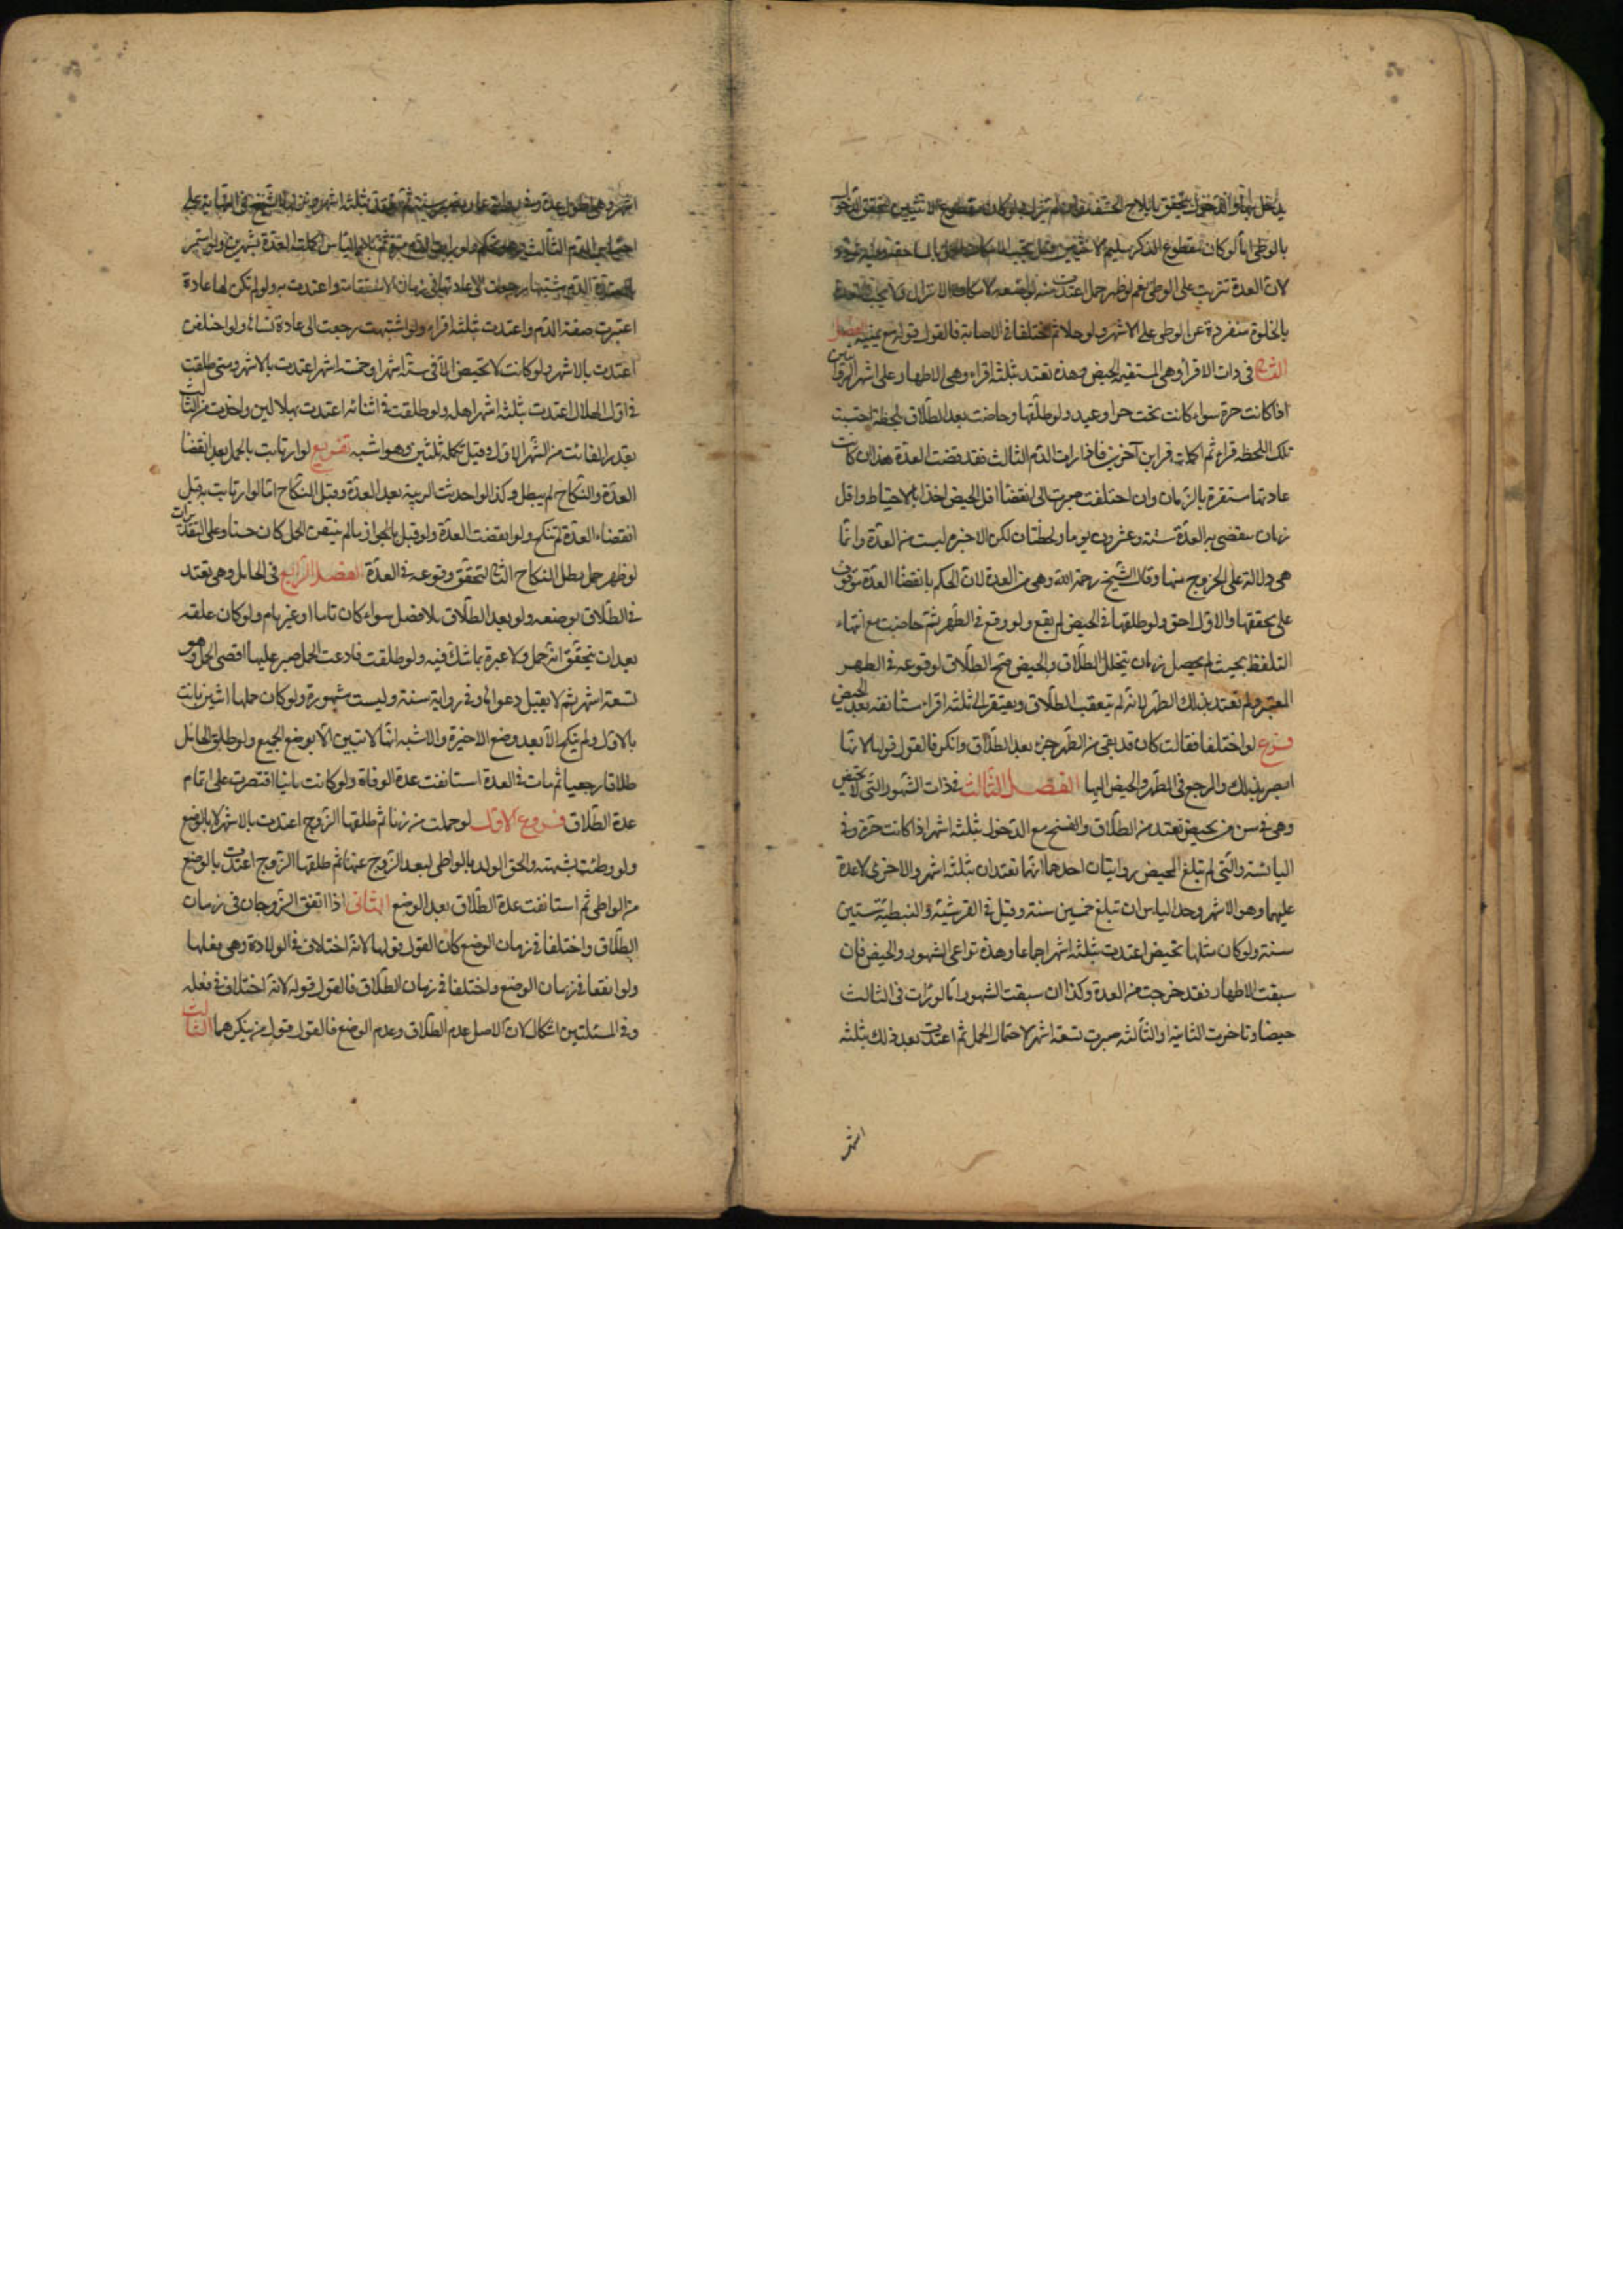 يدخل بها والدخول يتحقق بايلاج الحشفة وان لم ينزل ولو كان مقطوع الانثيين لتحقق الدخول
بالوطى اما لو كان مقطوع الذكر سليم الانثيين قيل يجب
لان العدة تترتب على الوطى نعم لو ظهر حمل اعتدت منه بوضعه لامكان الانزال ولا يجب العدة
بالخلوة منفردة عن الوطى على الاشهر ولو خلا ثم اختلفا فى الاصابة فالقول قوله مع يمينه الفصل
الثانى فى ذات الاقراء وهى المستقيمة الحيض وهذه تعتد بثلثة اقراء وهى الاطهار على اشهر الروايتين
اذا كانت حرة سواء كانت تحت حر او عبد ولو طلقها وحاضت بعد الطلاق بلحظة احتسبت
تلك اللحظة قراء ثم اكملت قراين آخرين فاذا رات الدم الثالث فقد قضت العدة هذا ان كانت
عادتها مستقرة بالزمان وان اختلفت صبرت الى انقضاء اقل الحيض اخذا بالاحتياط واقل
زمان ينقضى به العدة ستة وعشرون يوما ولحظتان لكن الاخيرة ليست من العدة وانما
هى دلالة على الخروج منها وقال الشيخ رحمه الله وهى من العدة لان الحكم بانقضاء العدة موقوف
على تحققها والاول احق ولو طلقها فى الحيض لم يقع ولو وقع فى الطهر ثم حاضت مع انتهاء
التلفظ بحيث لم يحصل زمان يتخلل الطلاق والحيض صح الطلاق لوقوعه فى الطهر
المعتبر ولم تعتد بذلك الطهر لانه لم يتعقب الطلاق ويفتقر الى ثلثة اقراء مستانفة بعد الحيض
فرع لو اختلفا فقالت كان قد بقى من الطهر جزء بعد الطلاق وانكر فالقول قولها لانها
ابصر بذلك والمرجع فى الطهر والحيض اليها الفصل الثالث فى ذات الشهور التى لا تحيض
وهى فى سن من تحيض تعتد من الطلاق والفسخ مع الدخول بثلثة اشهر اذا كانت حرة وفى
اليائسة والتى لم تبلغ المحيض روايتان احدهما انهما تعتدان بثلثة اشهر والاخرى لا عدة
عليهما وهو الاشهر وحد الياس ان تبلغ خمسين سنة وقيل فى القرشية والنبطية ستين
سنة ولو كان مثلها تحيض اعتدت بثلثة اشهر اجماعا وهذه تراعى الشهور والحيض فان
سبقت الاطهار فقد خرجت من العدة وكذا ان سبقت الشهور اما لو رات فى الثالث
حيضا وتاخرت الثانية او الثالثة صبرت تسعة اشهر لاحتمال الحمل ثم اعتدت بعد ذلك بثلثة
اشهر
اشهر وهى اطول عدة وفى رواية عمار تصبر سنة ثم تعتد بثلثة اشهر ونزلها الشيخ فى النهاية على
احتباس الدم الثالث وهو تحكم ولو رات الدم مرة ثم بلغت الياس اكملت العدة بشهرين ولو استمر
الدم مشتبها رجعت الى عادتها فى زمان الاستقامة واعتدت به ولو لم تكن لها عادة
اعتبرت صفة الدم واعتدت بثلثة اقراء ولو اشتبهت رجعت الى عادة نسائها ولو اختلفن
اعتدت بالاشهر ولو كانت لا تحيض الا فى ستة اشهر او خمسة اشهر اعتدت بالاشهر ومتى طلقت
فى اول الهلال اعتدت بثلثة اشهر اهلة ولو طلقت فى اثنائه اعتدت بهلالين واخذت من الثالث
بقدر الفائت من الشهر الاول وقيل تكمله ثلثين وهو اشبه تفريع لو ارتابت بالحمل بعد انقضاء
العدة والنكاح لم يبطل وكذا لو احدثت الريبة بعد العدة وقبل النكاح اما لو ارتابت به قبل
انقضاء العدة لم تنكح ولو انقضت العدة ولو قيل بالجواز ما لم يتيقن الحمل كان حسنا وعلى التقديرات
لو ظهر حمل بطل النكاح الثانى لتحقق وقوعه فى العدة الفصل الرابع فى الحامل وهى تعتد
فى الطلاق بوضعه ولو بعد الطلاق بلا فصل سواء كان تاما او غير تام ولو كان علقة
بعد ان يتحقق انه حمل ولا عبرة بما شك فيه ولو طلقت فادعت الحمل صبر عليها اقصى الحمل وهو
تسعة اشهر ثم لا يقبل دعواها وفى رواية سنة وليست مشهورة ولو كان حملها اثنين بانت
بالاول ولم تنكح الا بعد وضع الاخيرة والاشبه انها لا تبين الا بوضع الجميع ولو طلق الحائل
طلاقا رجعيا ثم مات فى العدة استانفت عدة الوفاة ولو كانت بائنا اقتصرت على اتمام
عدة الطلاق فروع الاول لو حملت من زنا ثم طلقها الزوج اعتدت بالاشهر لا بالوضع
ولو وطئت بشبهة والحق الولد بالواطى لبعد الزوج عنها ثم طلقها الزوج اعتدت بالوضع
من الواطى ثم استانفت عدة الطلاق بعد الوضع الثانى اذا اتفق الزوجان فى زمان
الطلاق واختلفا فى زمان الوضع كان القول قولها لانه اختلاف فى الولادة وهى فعلها
ولو اتفقا فى زمان الوضع واختلفا فى زمان الطلاق فالقول قوله لانه اختلاف فى فعله
وفى المسئلتين اشكال لان الاصل عدم الطلاق وعدم الوضع فالقول قول من ينكرهما الثالث